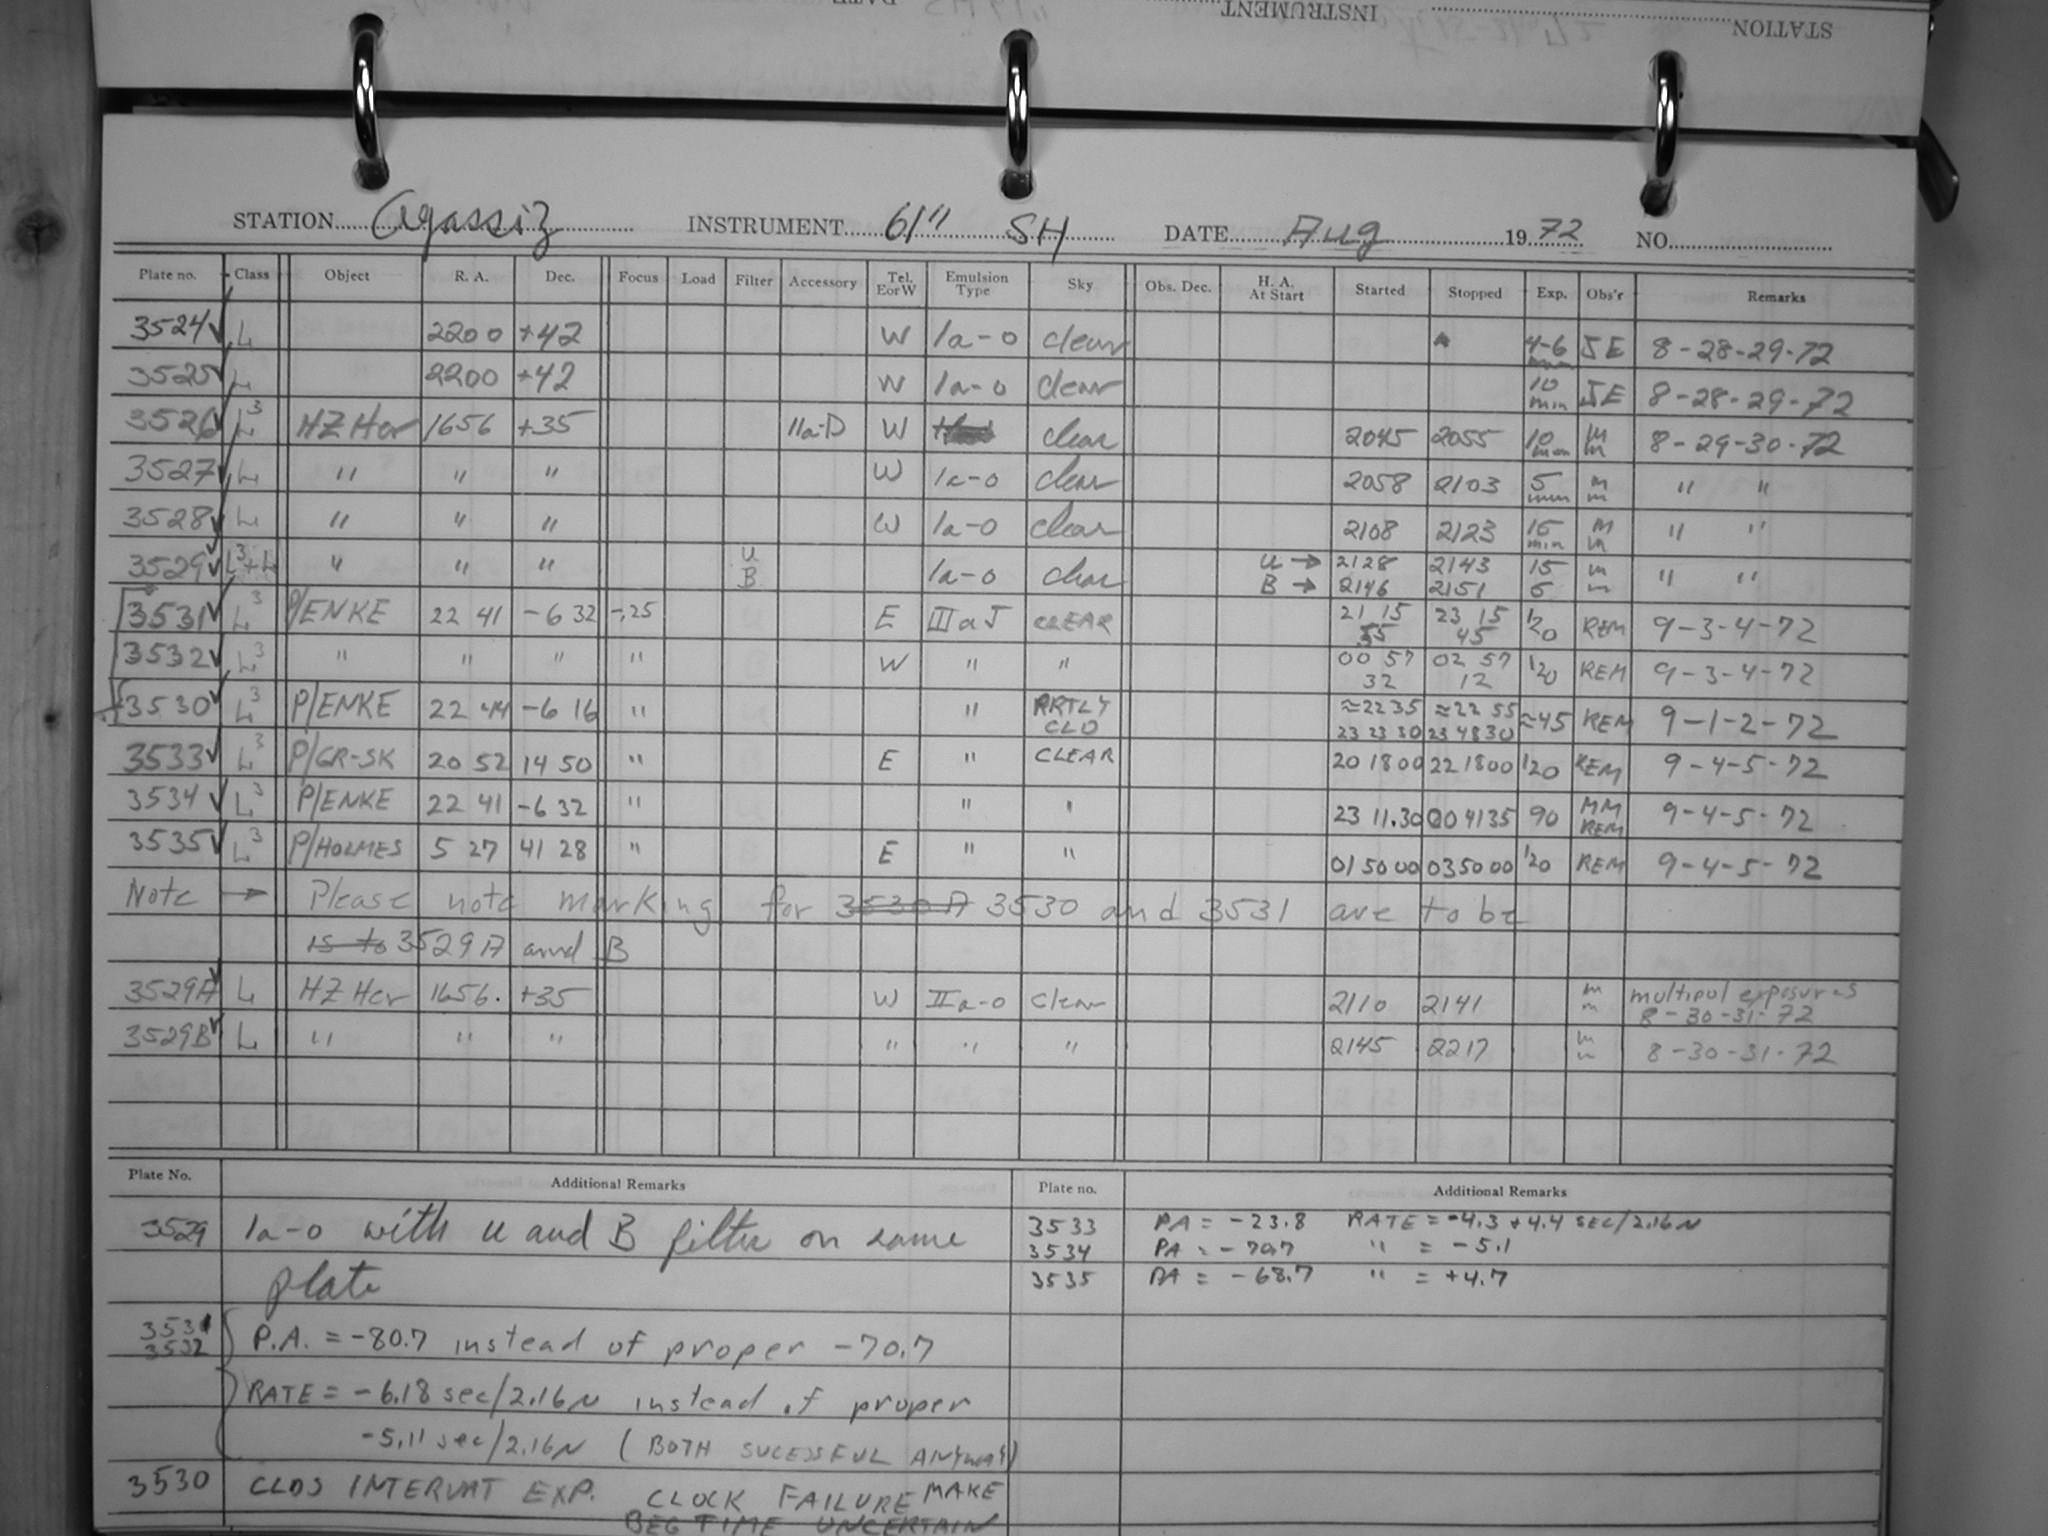 STATION INSTRUMENT
STATION Agassiz INSTRUMENT 61" SH DATE Aug 1972 NO.
Plate no. Class Object R. A. Dec. Focus Load Filter Accessory Tel. E or W Emulsion Type Sky Obs. Dec. H. A. At Start Started Stopped Exp. Obs'r Remarks
3524 L 2200 +42 W 1a-0 clear 4-6 min JE 8-28-29-72
3525 L 2200 +42 W 1a-0 clear 10 min JE 8-28-29-72
3526 L3 HZ Her 1656 +35 11a-D W clear 2045 2055 10 min mm 8-29-30-72
3527 L " " " W 1a-0 clear 2058 2103 5 min mm " "
3528 L " " " W 1a-0 clear 2108 2123 15 min mm " "
3529 L3+L " " " U 1a-0 clear U → 2128 2143 15 mm " "
B B → 2146 2151 5
3531 L3 P/ENKE 22 41 -6 32 -.25 E IIIaJ CLEAR 21 15 55 23 15 45 120 REM 9-3-4-72
3532 L3 " " " " W " " 00 57 32 02 57 12 120 REM 9-3-4-72
3530 L3 P/ENKE 22 44 -6 16 " " PRTLY CLD ≈2235 ≈22 55 ≈45 REM 9-1-2-72
23 23 30 23 48 30
3533 L3 P/GR-SK 20 52 14 50 " E " CLEAR 20 1800 22 1800 120 REM 9-4-5-72
3534 L3 P/ENKE 22 41 -6 32 " " " 23 11.30 00 4135 90 MM REM 9-4-5-72
3535 L3 P/HOLMES 5 27 41 28 " E " " 01 50 00 03 50 00 120 REM 9-4-5-72
Note → Please note marking for 3530A 3530 and 3531 are to be
is to 3529A and B
3529A L HZ Her 1656. +35 W IIa-0 clear 2110 2141 mm multipul exposures 8-30-31-72
3529B L " " " " " " 2145 2217 mm 8-30-31-72
Plate No. Additional Remarks Plate no. Additional Remarks
3529 1a-0 with U and B filter on same
plate
3531
3532 P.A. = -80.7 instead of proper -70.7
RATE = -6.18 sec/2.16N instead of proper
-5.11 sec/2.16N (BOTH SUCESSFUL ANYWAY)
3530 CLDS INTERUPT EXP. CLOCK FAILURE MAKE
BEG TIME UNCERTAIN
3533 PA = -23.8 RATE = -4.3 +4.4 SEC/2.16N
3534 PA = -70.7 " = -5.1
3535 PA = -68.7 " = +4.7